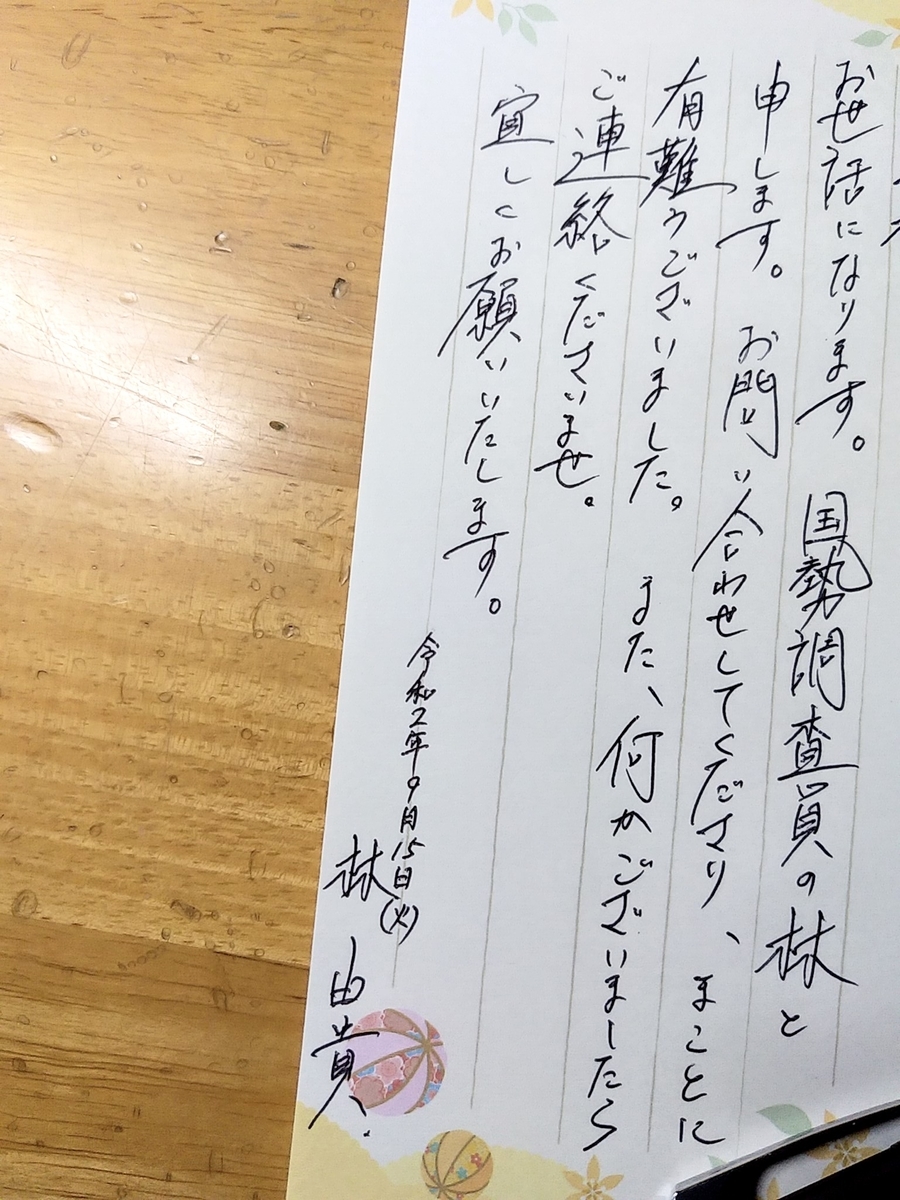 お世話になります。国勢調査員の林と
申します。お問い合わせしてくださり、まことに
有難うございました。また、何かございましたら
ご連絡くださいませ。
宜しくお願いいたします。
令和2年9月15日(火)
林 由貴